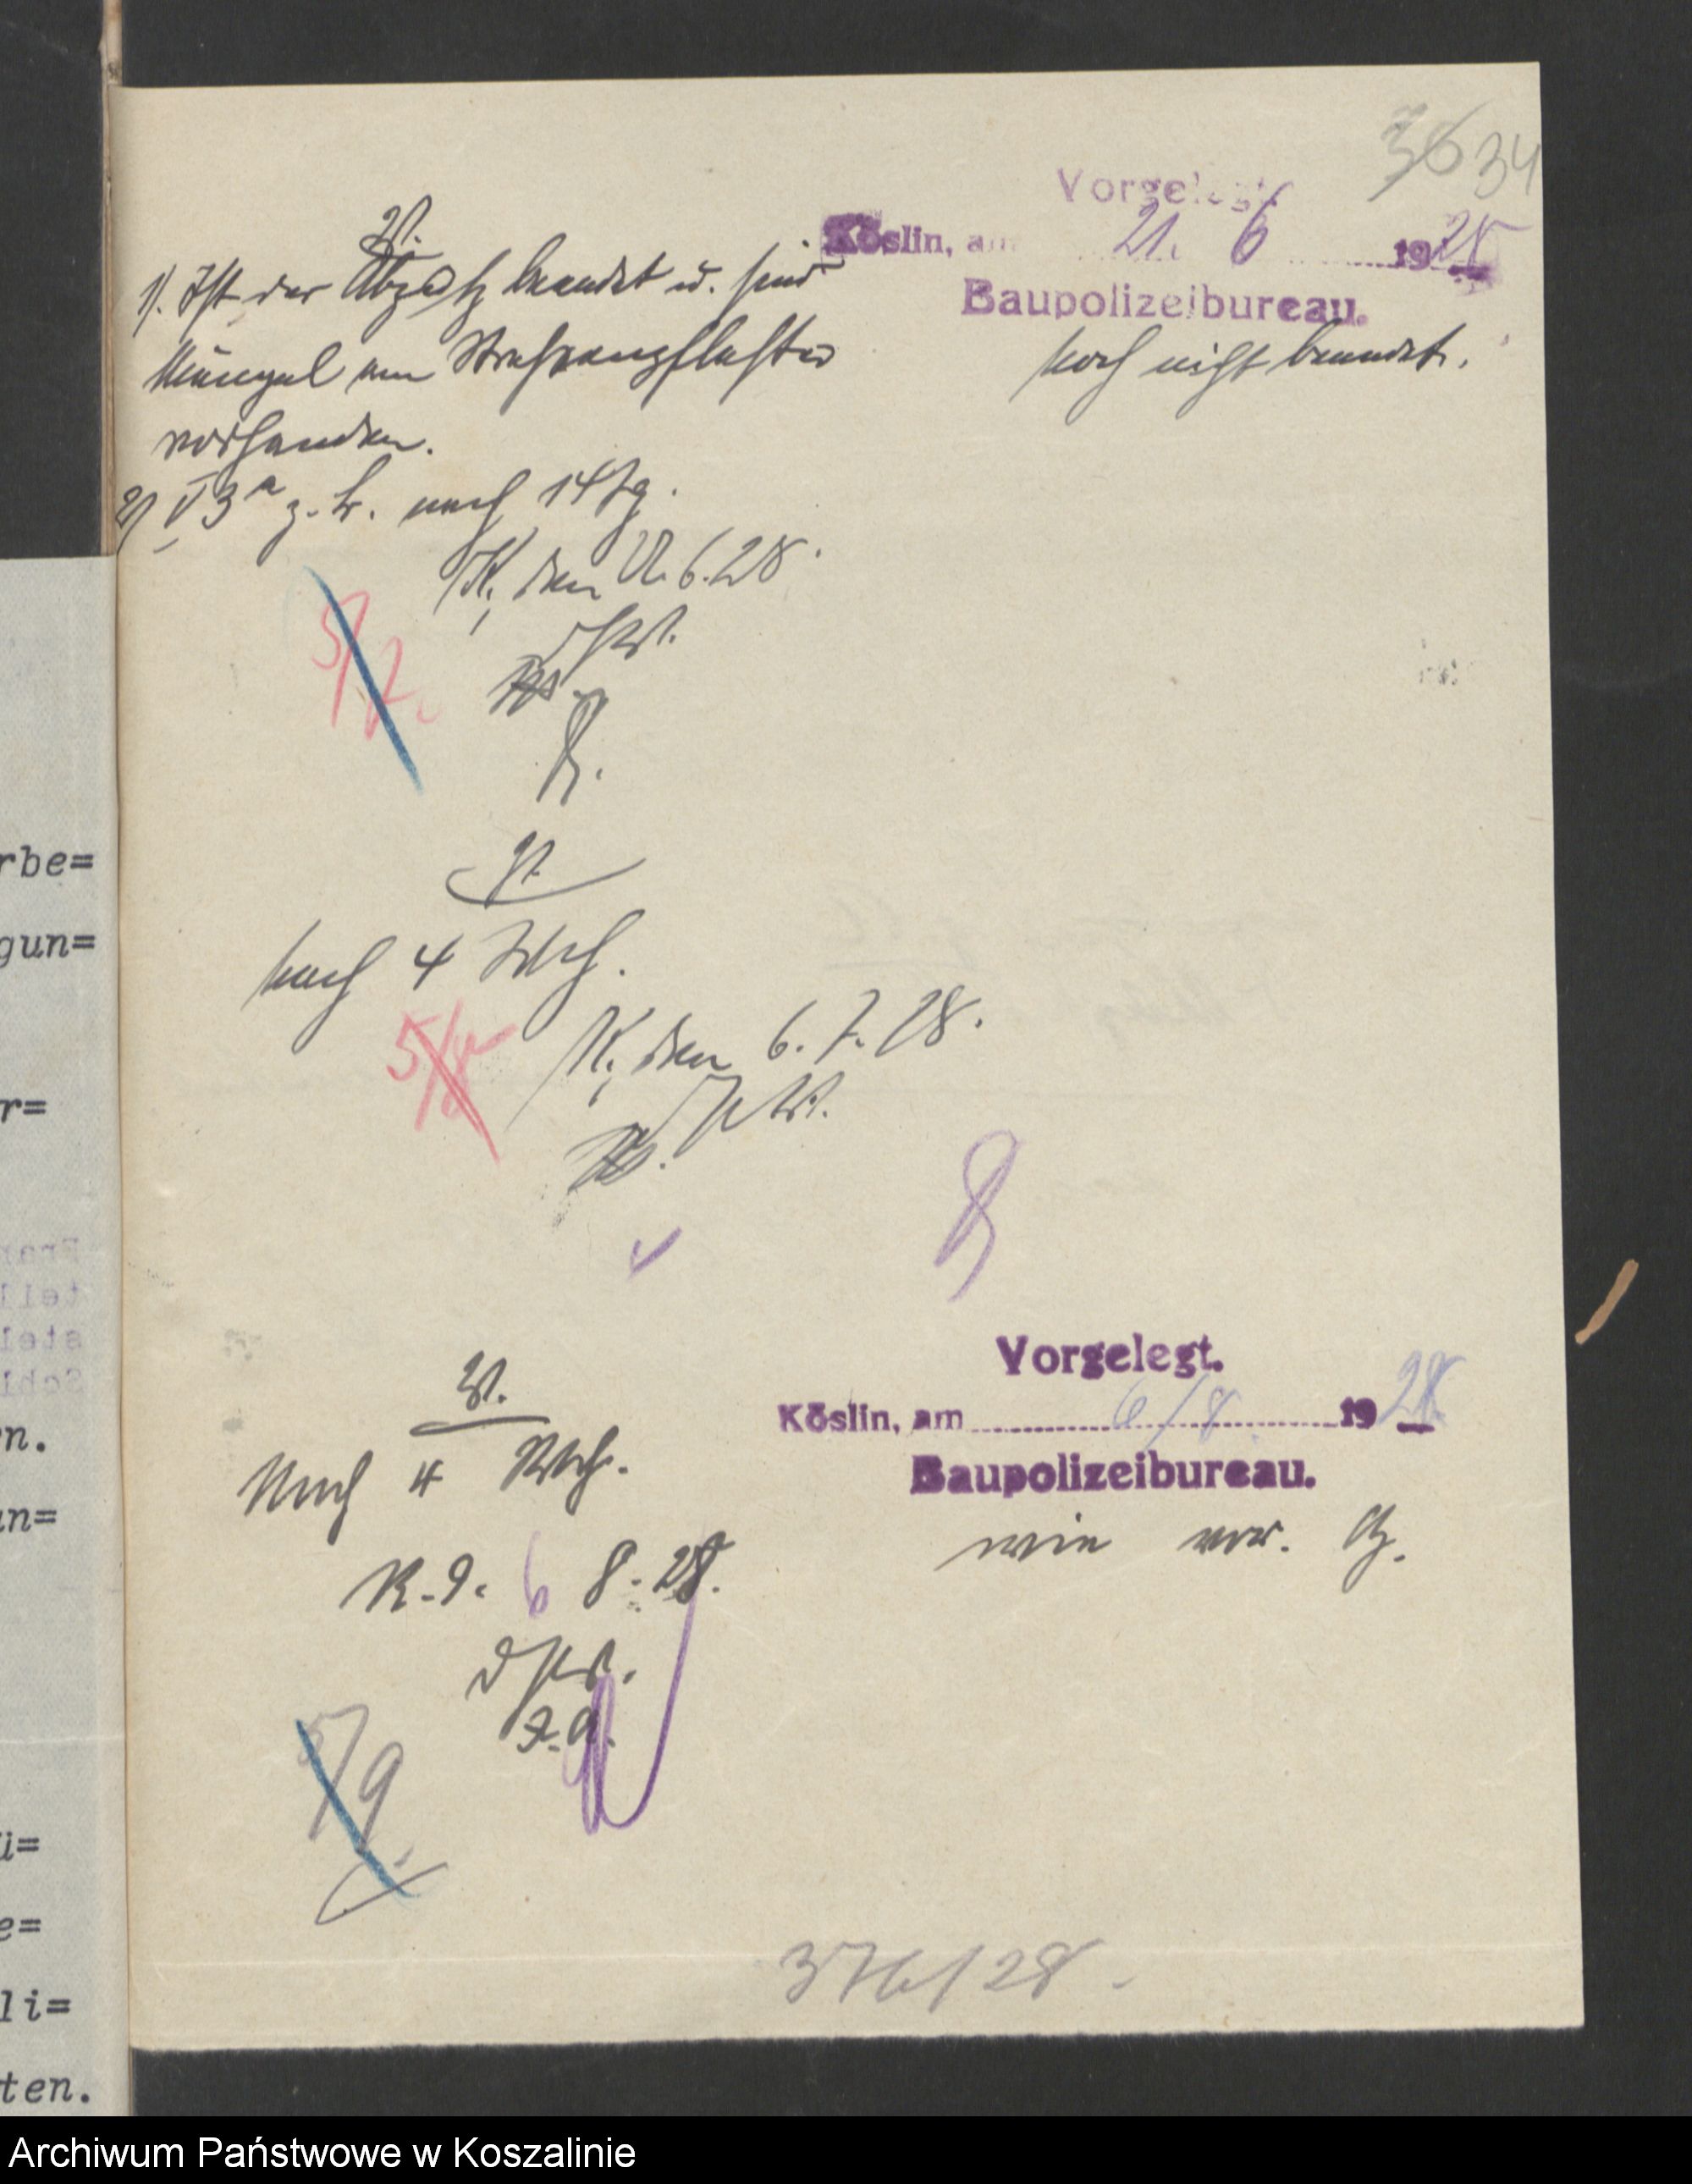 36 34
Vorgelegt.
Köslin, am 21. 6 1928
Baupolizeibureau.
noch nicht beendet.
V.
1). Ist der Abputz beendet u. sind
Mängel am Straßenpflaster
vorhanden.
2) V 3a z. Fr. nach 14 Tg.
K, den 22.6.28.
5/7.
V.
nach 4 Wch.
5/8
K, den 6.7.28.
Vorgelegt.
Köslin, am 6/8 1928
Baupolizeibureau.
wie vor.
V.
Nach 4 Wch.
K. d. 6 8. 28.
5/9
376/28.
rbe=
gun=
r=
n.
un=
ü=
e=
li=
ten.
Archiwum Państwowe w Koszalinie